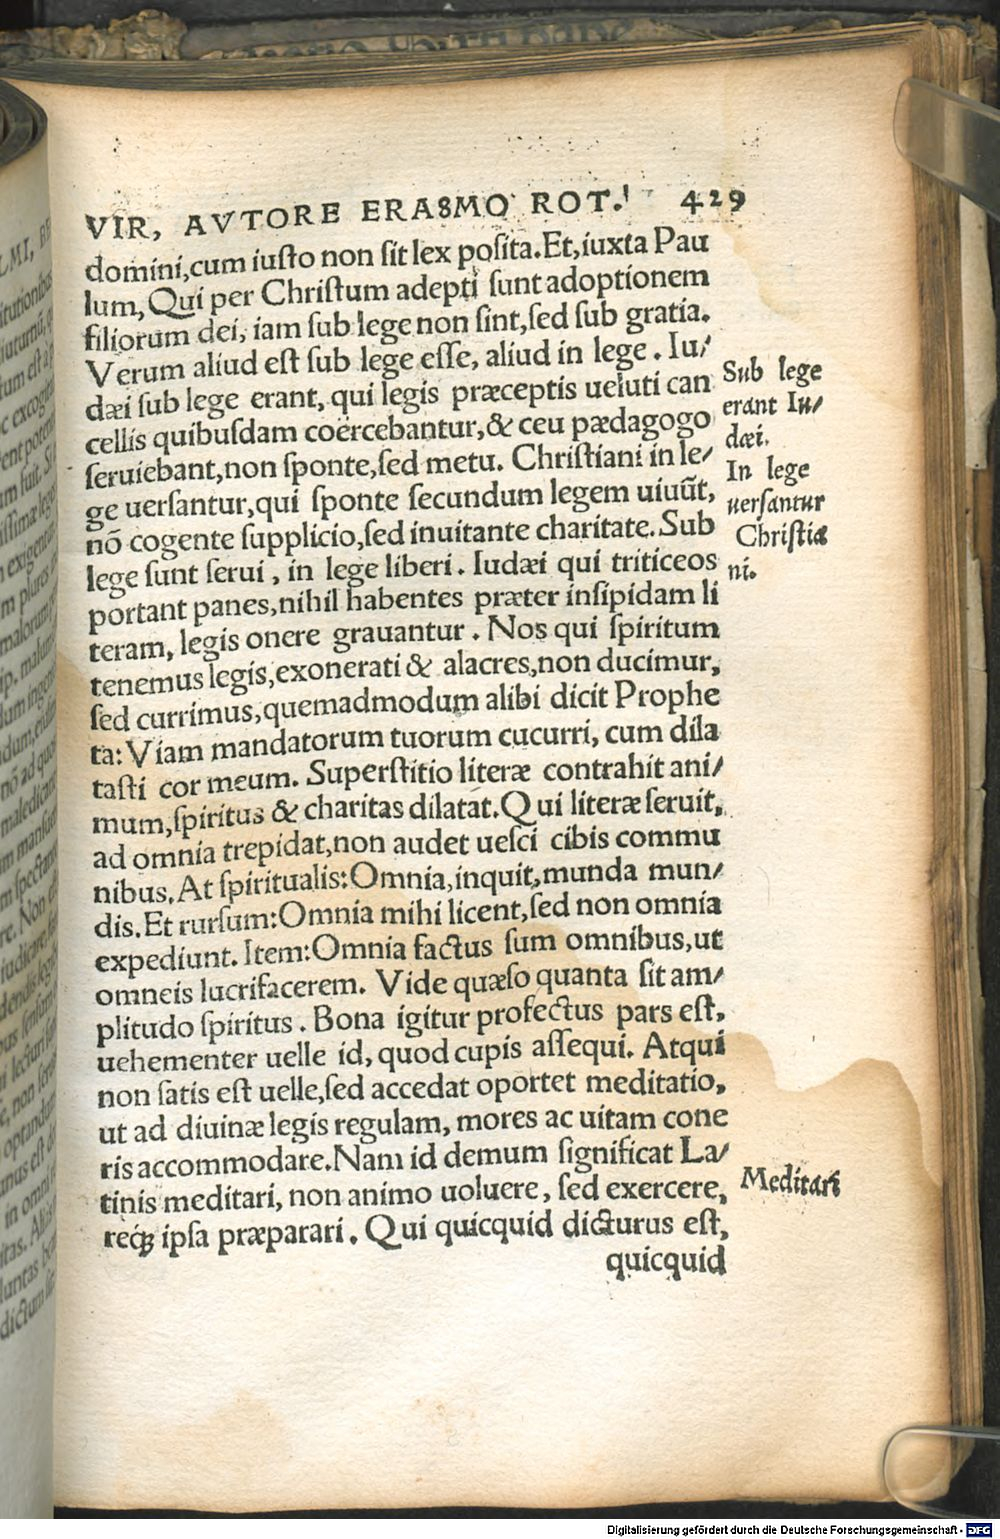 VIR, AVTORE ERASMO ROT. 429
domini, cum iusto non sit lex posita. Et, iuxta Pau
lum, Qui per Christum adepti sunt adoptionem
filiorum dei, iam sub lege non sint, sed sub gratia.
Verum aliud est sub lege esse, aliud in lege. Iu/
dæi sub lege erant, qui legis præceptis ueluti can
cellis quibusdam coërcebantur, & ceu pædagogo
seruiebant, non sponte, sed metu. Christiani in le/
ge uersantur, qui sponte secundum legem uiuũt,
nõ cogente supplicio, sed inuitante charitate. Sub
lege sunt serui, in lege liberi. Iudæi qui triticeos
portant panes, nihil habentes præter insipidam li
teram, legis onere grauantur. Nos qui spiritum
tenemus legis, exonerati & alacres, non ducimur,
sed currimus, quemadmodum alibi dicit Prophe
ta: Viam mandatorum tuorum cucurri, cum dila
tasti cor meum. Superstitio literæ contrahit ani/
mum, spiritus & charitas dilatat. Qui literæ seruit,
ad omnia trepidat, non audet uesci cibis commu
nibus. At spiritualis: Omnia, inquit, munda mun/
dis. Et rursum: Omnia mihi licent, sed non omnia
expediunt. Item: Omnia factus sum omnibus, ut
omneis lucrifacerem. Vide quæso quanta sit am/
plitudo spiritus. Bona igitur profectus pars est,
uehementer uelle id, quod cupis assequi. Atqui
non satis est uelle, sed accedat oportet meditatio,
ut ad diuinæ legis regulam, mores ac uitam cone
ris accommodare. Nam id demum significat La/
tinis meditari, non animo uoluere, sed exercere,
reqꝫ ipsa præparari. Qui quicquid dicturus est,
quicquid
Sub lege
erant Iu/
dæi.
In lege
uersantur
Christia
ni.
Meditari
Digitalisierung gefördert durch die Deutsche Forschungsgemeinschaft - DFG